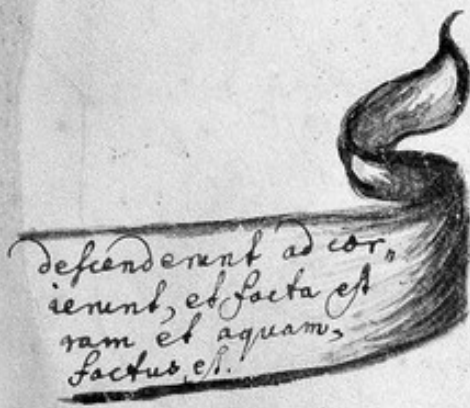 descenderunt ad cor„
ierunt, et facta est
ram et aquam,
factus est.